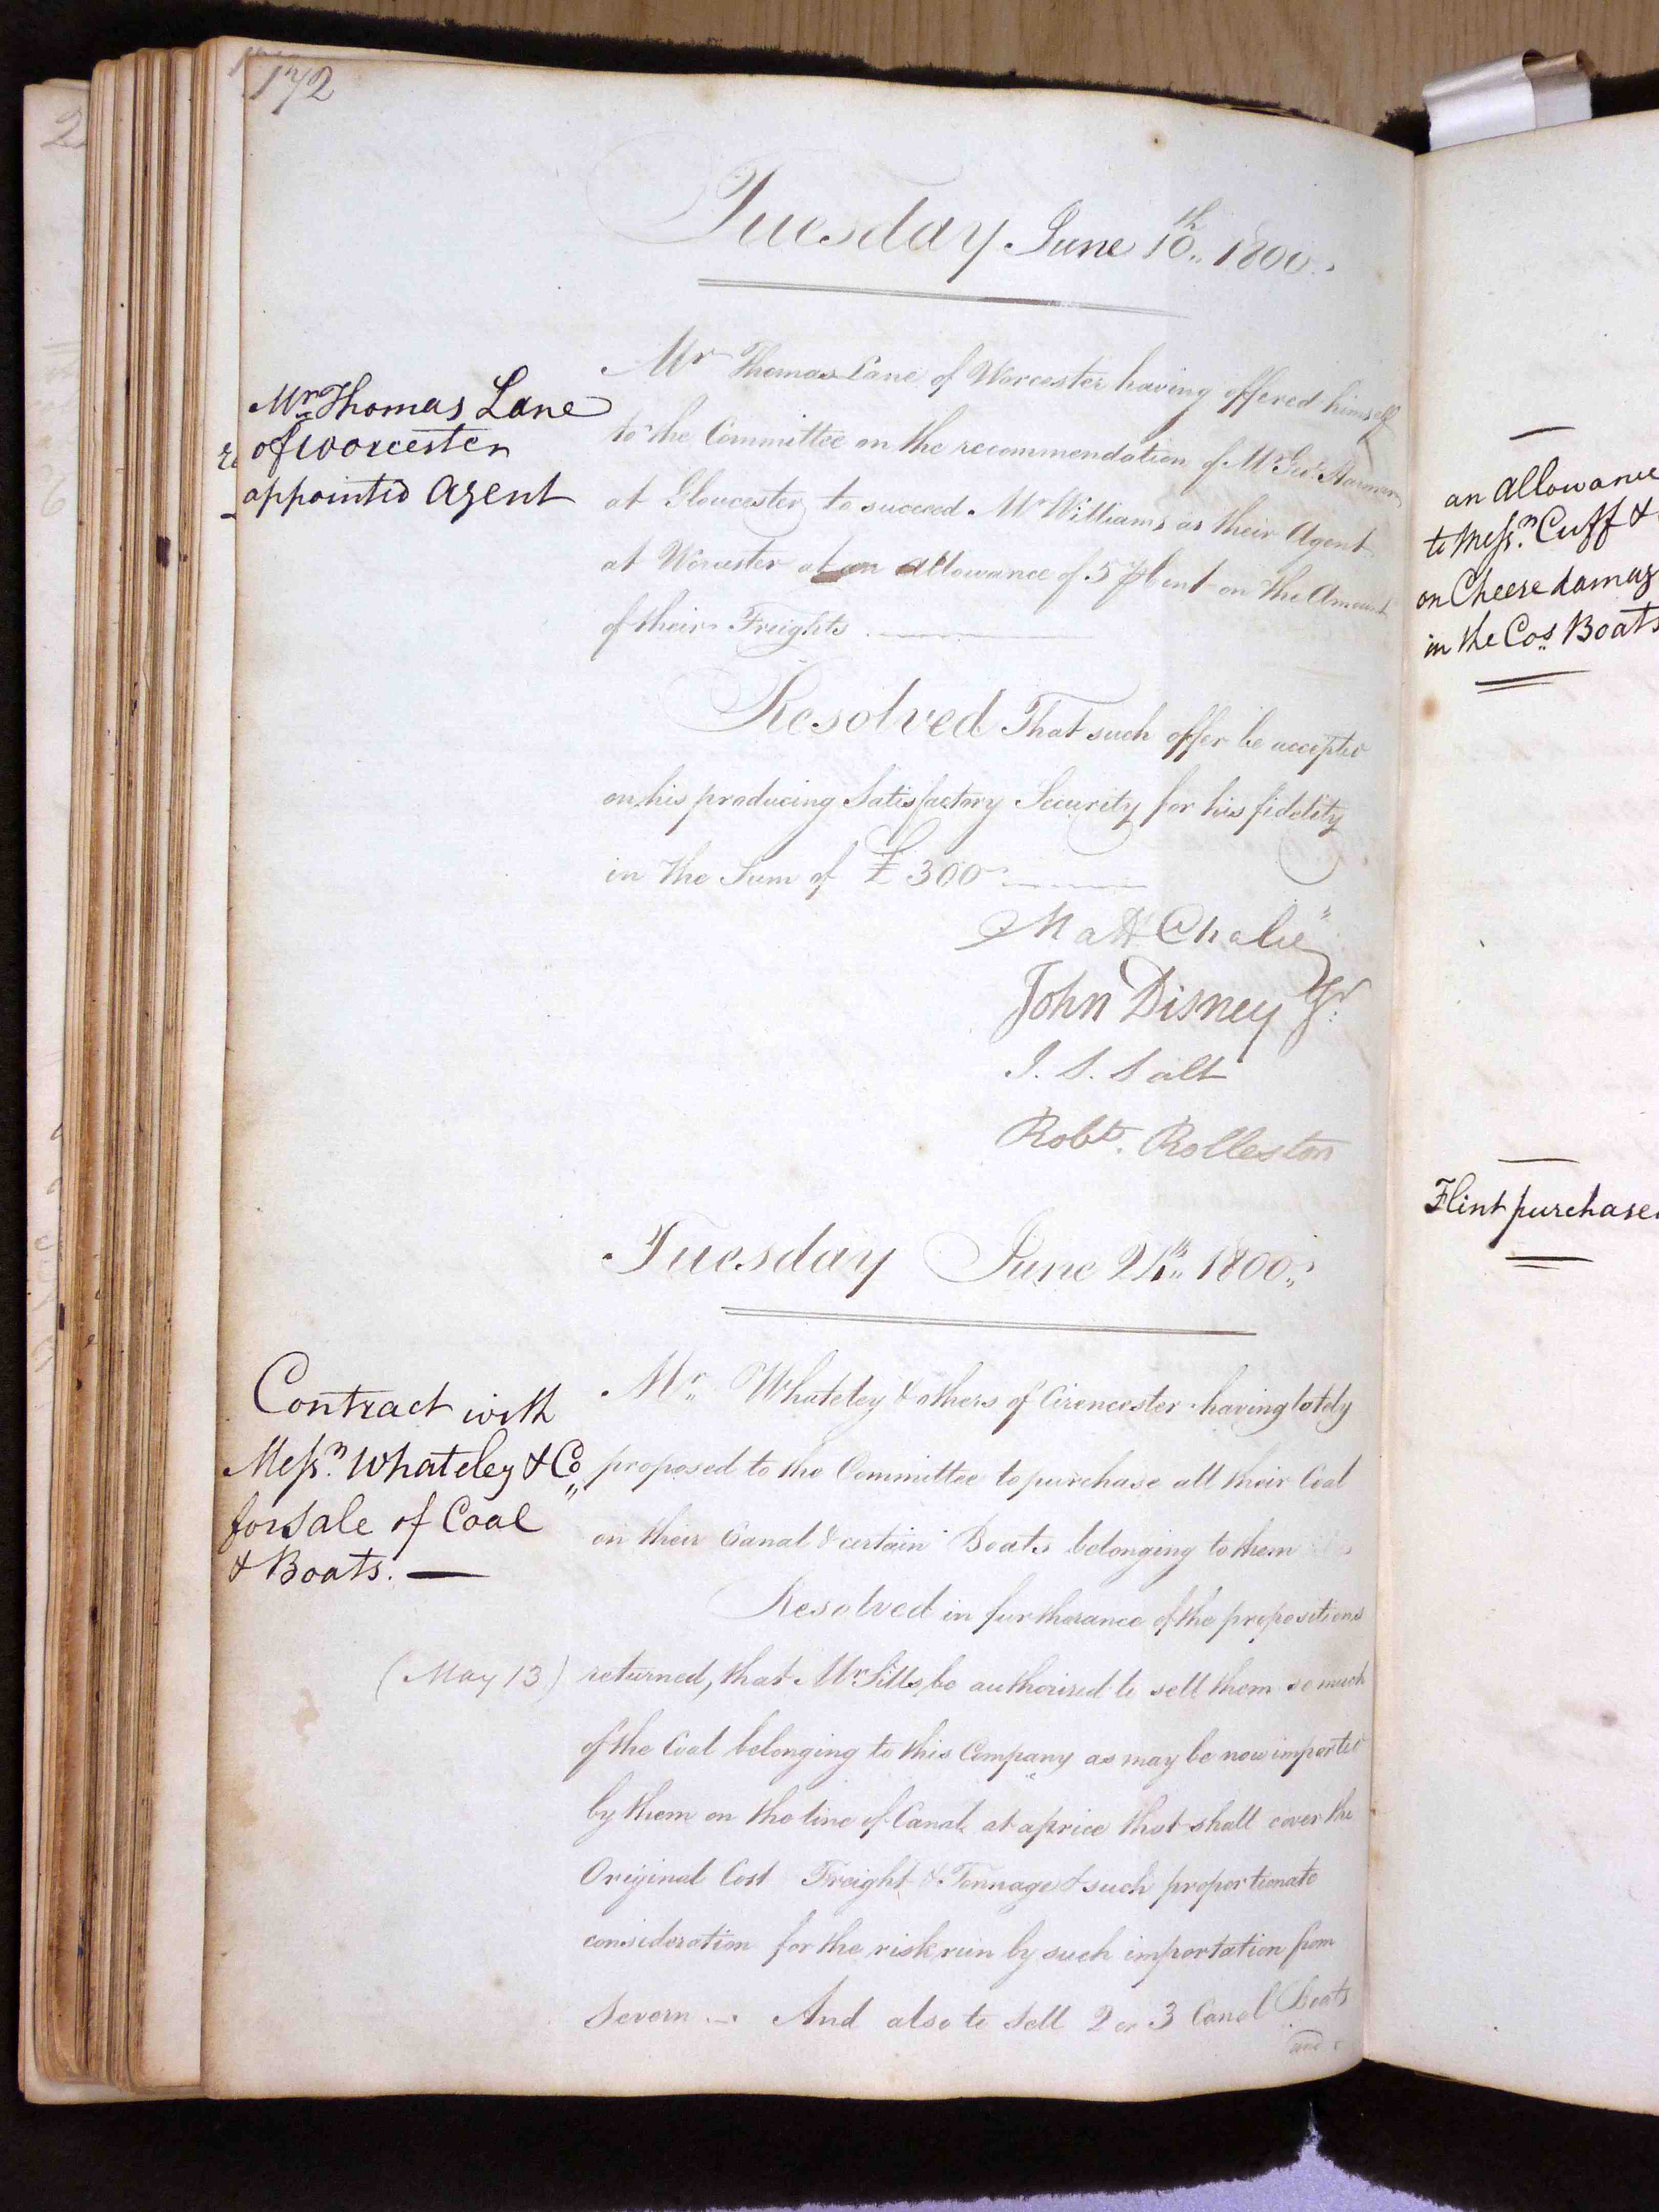 172
Tuesday June 10th 1800.
Mr Thomas Lane
of Worcester
appointed Agent
Mr Thomas Lane of Worcester having offered himself
to the Committee on the recommendation of Mr Geo. Harman
at Gloucester, to succeed Mr Williams as their Agent
at Worcester at an Allowance of 5 P Cent on the Amount
of their Freights
Resolved That such offer be accepted
on his producing Satisfactory Security for his fidelity
in the Sum of £300
Matt Chalié
John Disney Jr.
J. S. Salt
Robt. Rolleston
Tuesday June 24th 1800.
Contract with
Messrs. Whateley & Co
for Sale of Coal
& Boats.
Mr. Whateley & others of Cirencester having lately
proposed to the Committee to purchase all their Coal
on their Canal & certain Boats belonging to them
Resolved in furtherance of the propositions
(May 13)
returned, that Mr Sills be authorised to sell them so much
of the Coal belonging to this Company as may be now imported
by them on the line of Canal, at a price that shall cover the
Original Cost Freight & Tonnage & such proportionate
consideration for the risk run by such importation from
Severn. And also to Sell 2 or 3 Canal Boats
and
an allowance
to Messrs. Cuff &
on Cheese damag
in the Cos. Boats
Flint purchase